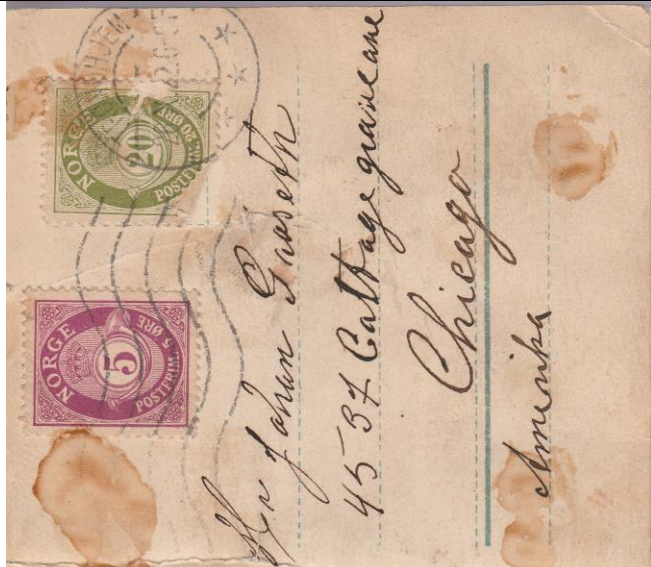 NORGE
20
POSTFRIM. 20 ØRE
NORGE
5
POSTFRIM. 5 ØRE
Hr Johan Graseth
4537 Cattage grave ane
Chicago
Amerika